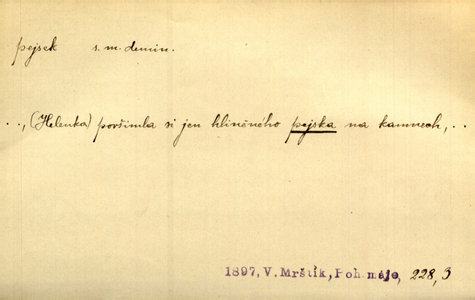 pejsek s. m. demin.
.., (Helenka) povšimla si jen hliněného pejska na kamnech, ..
1897, V. Mrštík, Poh. máje, 228,3